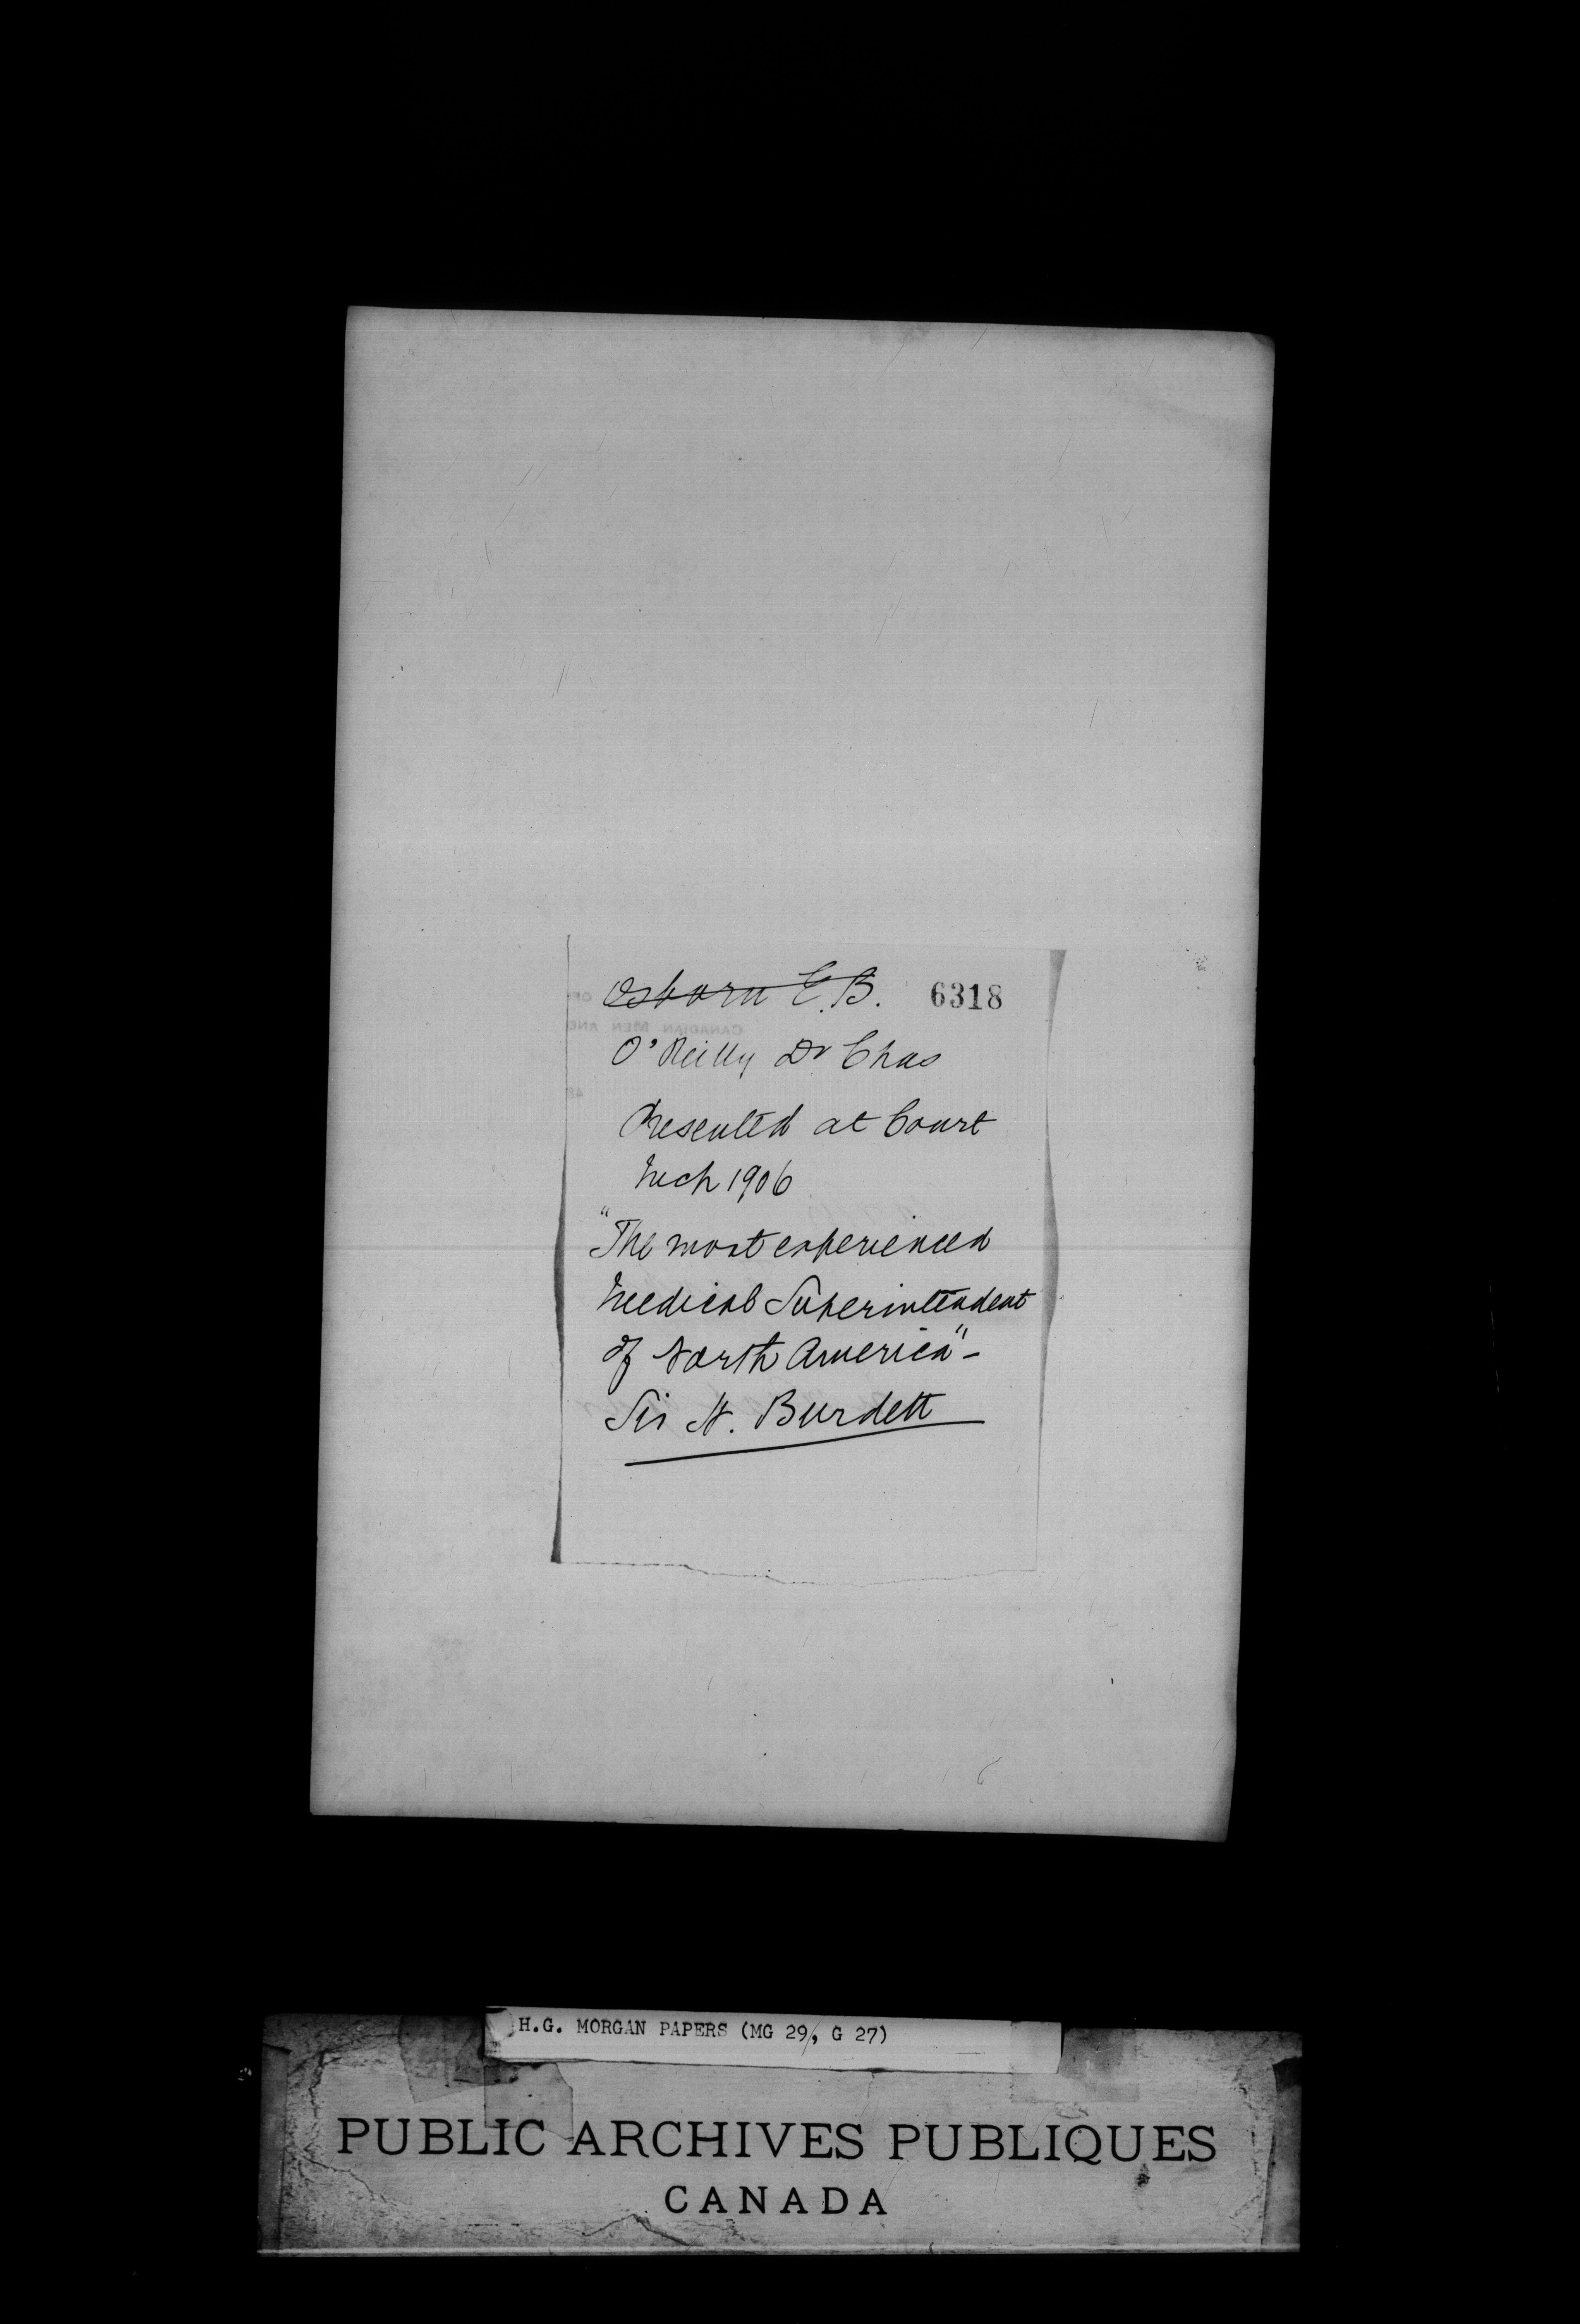 Osborn E.B. 6318
O'Reilly Dr Chas
Presented at Court
Mch 1906
"The most experienced
Medical Superintendent
of North America" -
Sir H. Burdett
H.G. MORGAN PAPERS (MG 29, G 27)
PUBLIC ARCHIVES PUBLIQUES
CANADA